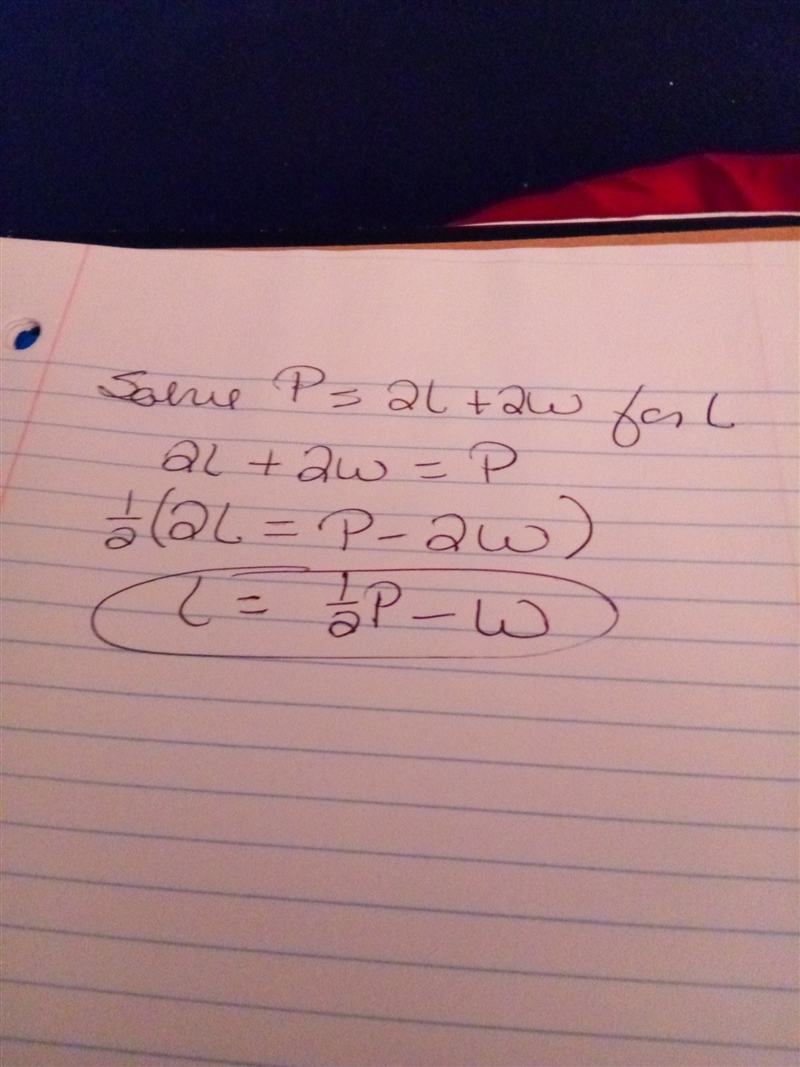 Solve P = 2L + 2W for L
2L + 2W = P
1/2 (2L = P - 2W)
L = 1/2 P - W